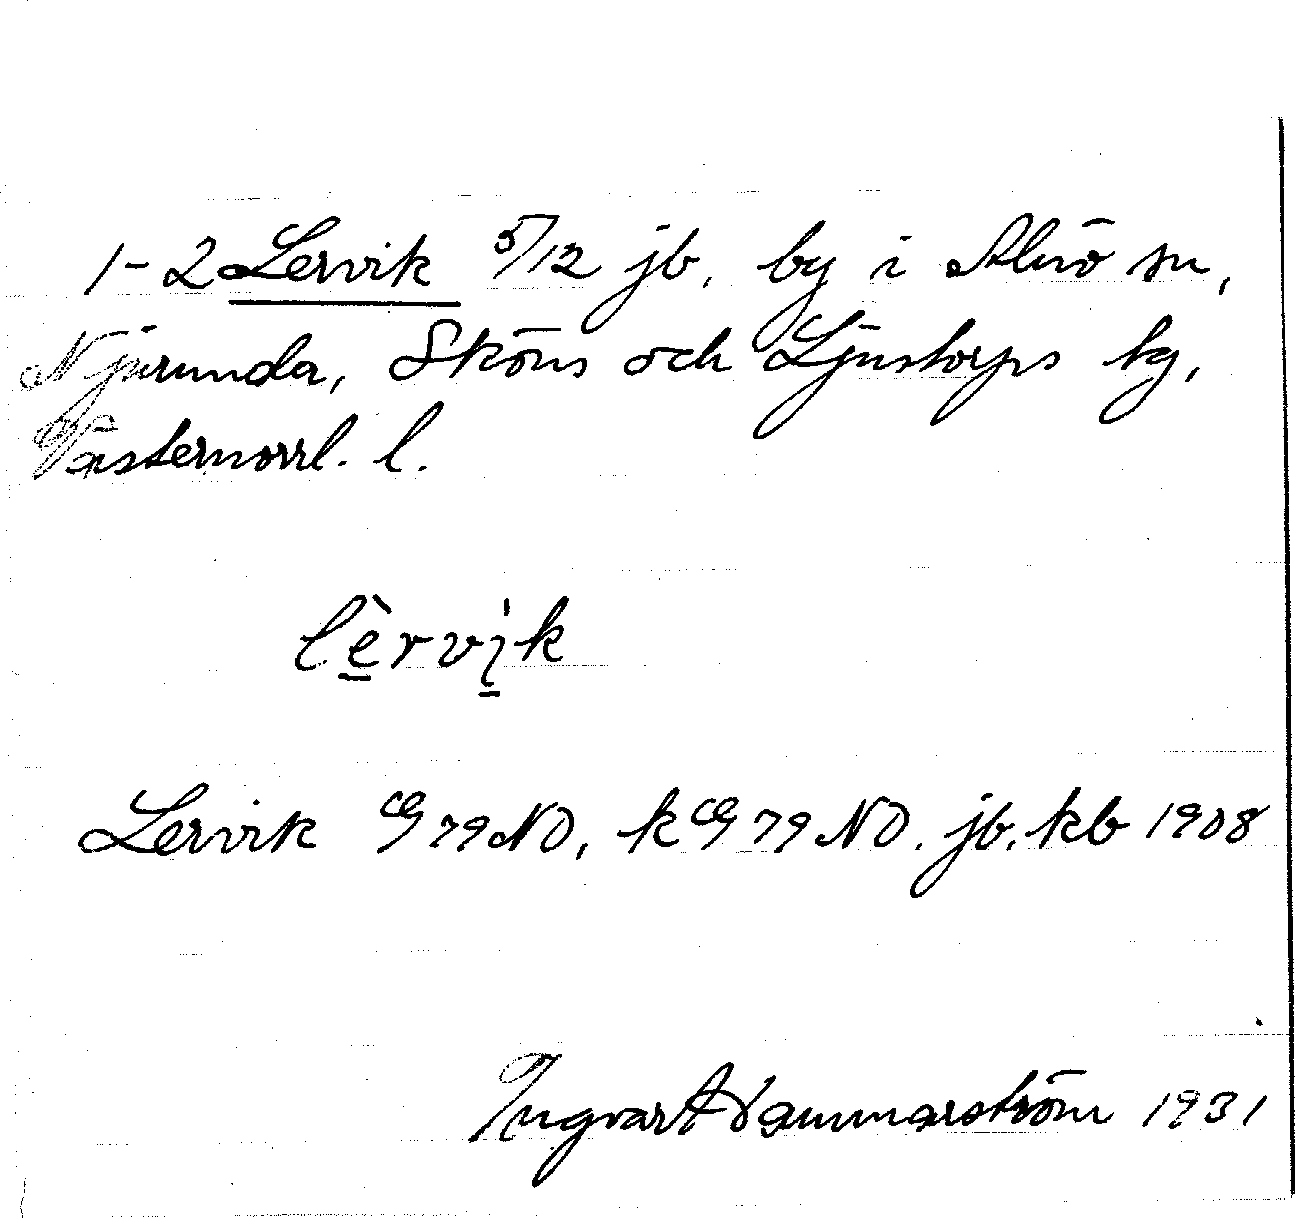 1-2 Lervik 5/12 jb. by i Alnö sn,
Njurunda, Sköns och Ljustorps tg,
Västernorrl. l.
lèrvi̍k
Lervik CG 79 NO, k CG 79 NO. jb. kb 1908
Ingvar Hammarström 1931